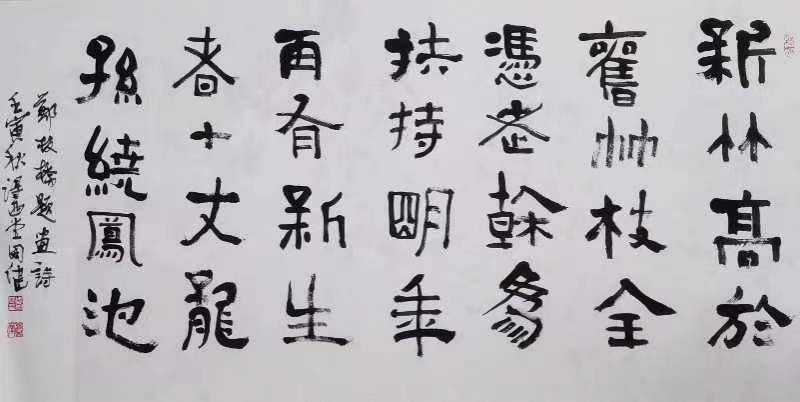 新竹高於
舊竹枝全
憑老幹為
扶持明年
再有新生
者十丈龍
孫繞鳳池
鄭板橋題畫詩
壬寅秋